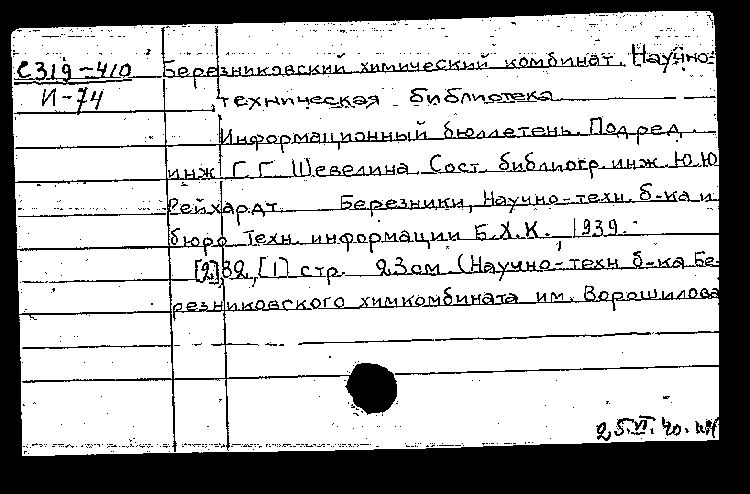 С319-410
И-74
Березниковский химический комбинат. Научно-
техническая библиотека
Информационный бюллетень. Под ред.
инж Г. Г. Шевелина. Сост. библиогр. инж. Ю. Ю
Рейхардт. Березники, Научно-техн. б-ка и
бюро Техн. информации Б.Х.К., 1939.
[2], 32, [1] стр. 23 см. (Научно-техн б-ка Бе-
резниковского химкомбината им. Ворошилова
25.VI.40.